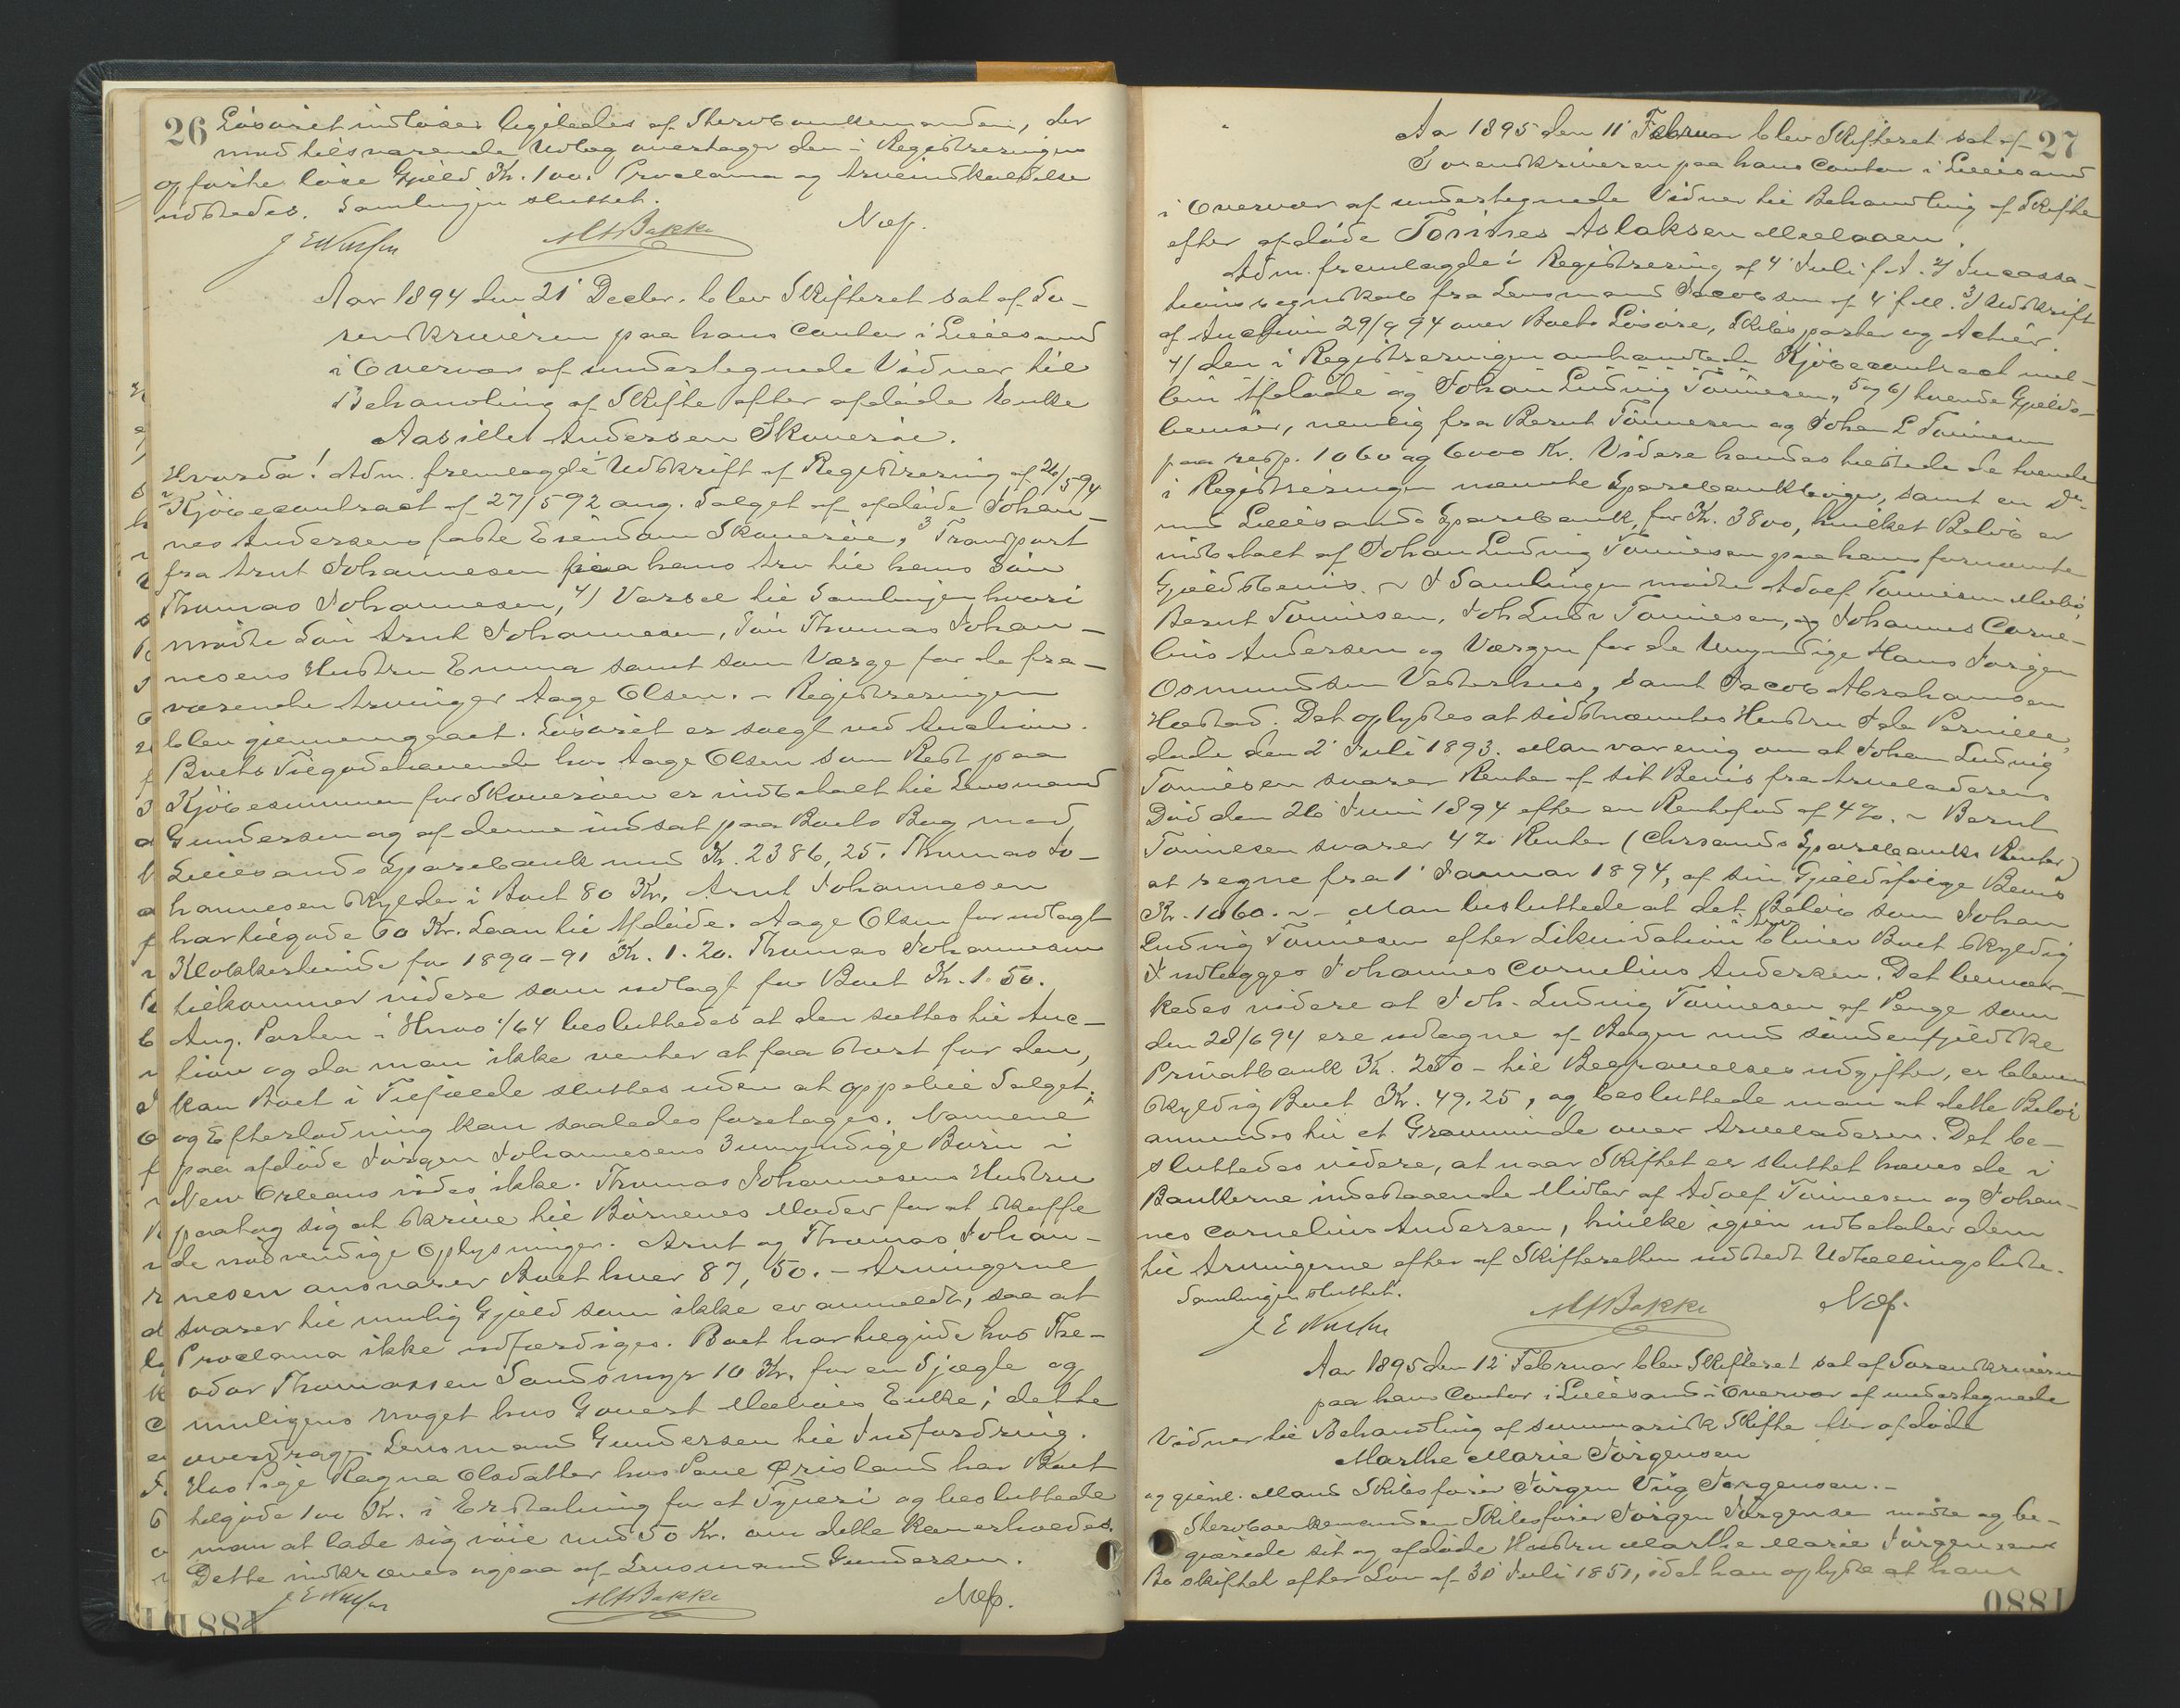 26
Løsøret indløses ligeledes af Stervboenkemanden, der
mod tilsvarende Udlæg overtager den i Registreringen
opførte løse Gjæld Kr. 100. Proclama og Arveindkaldelse
udstedes. Samlingen sluttet.
A H Bakke
Aar 1894 den 21' Decbr. blev Skifteret sat af So-
renskriveren paa hans Contor i Lillesand
i Overvær af undertegnede Vidner til
Behandling af Skifte efter afdøde Enke
Aasille Andersen Skauerøe.
Hvorda! Adm. fremlagde 1 Udskrift af Registrering af 26/5 94
2 Kjøbecontract af 27/5 92 ang. Salget af afdøde Johan-
nes Andersens faste Eiendom Skauerøe, 3 Transport
fra Arnt Johannesen paa hans Arv til hans Søn
Thomas Johannesen, 4) Varsel til Samlingen hvori
mødte Søn Arnt Johannesen, Søn Thomas Johan-
nesens Hustru Emma samt som Værge for de fra-
værende Arvinger Aage Olsen. - Registreringen
blev gjennemgaaet. Løsøret er solgt ved Auction.
Boets Tilgodehavende hos Aage Olsen som Rest paa
Kjøbesummen for Skauerøen er indbetalt til Lensmand
Gundersen og af denne indsat paa Boets Bog med
Lillesands Sparebank med Kr. 2386,25. Thomas Jo-
hannesen skylder i Boet 80 Kr. Arnt Johannesen
har tilgode 60 Kr. Laan til Afdøde. Aage Olsen for udlagt
Klokkertiende for 1890-91 Kr. 1.20. Thomas Johannesen
tilkommer videre som udlagt for Boet Kr. 1.50.
Ang. Parten i Hmos 1/64 besluttedes at den sættes til Auc-
tion og da man ikke venter at faa stort for den,
kan Boet i Tilfælde sluttes uden at oppebie Salget,
og Efterlodning kan saaledes foretages. Navnene
paa afdøde Jørgen Johannesens 3 umyndige Børn i
New Orleans vides ikke. Thomas Johannesens Hustru
paatog sig at skrive til Børnenes Moder for at skaffe
de nødvendige Oplysninger. Arnt og Thomas Johan-
nesen ansvarer Boet hver 87,50. - Arvingerne
svarer til mulig Gjæld som ikke er anmeldt, saa at
Proclama ikke udfærdiges. Boet har tilgode hos The-
odor Thomassen Sandsmyr 10 Kr. for en Sjægte og
muligens noget hos Govert Enke; dette
overdrages Lensmand Gundersen til Indfordring.
Hos Pige Ragna Olsdatter hos Pave Ørisland har Boet
tilgode 100 Kr. i Erstatning for et Tyveri og besluttede
man at lade sig nøie med 50 Kr. om dette kan erholdes.
Dette indkræves ogsaa af Lensmand Gundersen.
A H Bakke
1881
27
Aar 1895 den 11' Februar blev Skifteret sat af
Sorenskriveren paa hans Contor i Lillesand
i Overvær af undertegnede Vidner til Behandling af Skifte
efter afdøde Tønnes Aslaksen
Adm. fremlagde 1 Registrering af 4' Juli f. A. 2) Incassa-
tionsregnskab fra Lensmand Jacobsen af 4' f. M. 3) Udskrift
af Auction 29/9 94 over Boets Løsøre, Skibsparter og Actier
4) den i Registreringen omhandlede Kjøbecontract mel-
lem Afdøde og Johan Ludvig Tønnesen, 5 og 6) tvende Gjælds-
beviser, nemlig fra Bernt Tønnesen og Johan L Tønnesen
paa resp. 1060 og 6000 Kr. Videre havdes tilstede de tvende
i Registreringen nævnte Sparebankbøger, samt en Do
med Lillesands Sparebank, for Kr. 3800, hvilket Beløb er
indbetalt af Johan Ludvig Tønnesen paa hans fornævnte
Gjældsbevis. - I Samlingen mødte Adolf Tønnesen
Bernt Tønnesen, Joh Ludv Tønnesen, og Johannes Corne-
lius Andersen og Værgen for de Umyndige Hans Jørgen
Osmundsen Vesterhus, samt Jacob Abrahamsen
Hæstad. Det oplystes at sidstnævntes Hustru Ida Pernille,
døde den 2' Juli 1893. Man var enig om at Johan Ludvig
Tønnesen svarer Renter af sit Bevis fra Arveladerens
Død den 26 Juni 1894 efter en Rentefod af 4 %. - Bernt
Tønnesen svarer 4 % Renter (Chrsands Sparebanks Renter)
at regne fra 1' Januar 1894, af sin Gjæld ifølge Bevis
Kr. 1060. - Man besluttede at det Beløb som Johan
Ludvig Tønnesen efter Likvidation i Arv bliver Boet skyldig
udlægges Johannes Cornelius Andersen. Det bemær-
kedes videre at Joh. Ludvig Tønnesen af Penge som
den 28/6 94 ere udtagne af Bogen med søndenfjeldske
Privatbank Kr. 250 - til Begravelsesudgifter, er bleven
skyldig Boet Kr. 49.25, og besluttede man at dette Beløb
anvendes til et Gravminde over Arveladeren. Det be-
sluttedes videre, at naar Skiftet er sluttet hæves de i
Bankerne indestaaende Midler af Adolf Tønnesen og Johan-
nes Cornelius Andersen, hvilke igjen udbetaler dem
til Arvingerne efter af Skifteretten udstedt Udtællingsliste.
Samlingen sluttet.
A H Bakke
Aar 1895 den 12' Februar blev Skifteret sat af Sorenskriveren
paa hans Contor i Lillesand i Overvær af undertegnede
Vidner til Behandling af summarisk Skifte efter afdøde
Marthe Marie Jørgensen
og gjenl. Mand Skibsfører Jørgen Vüg Jørgensen. -
Stervboenkemanden Skibsfører Jørgen Jørgensen mødte og be-
gjærede sit og afdøde Hustru Marthe Marie Jørgensens
Bo skiftet efter Lov af 30 Juli 1851, idet han oplyste at hans
0881